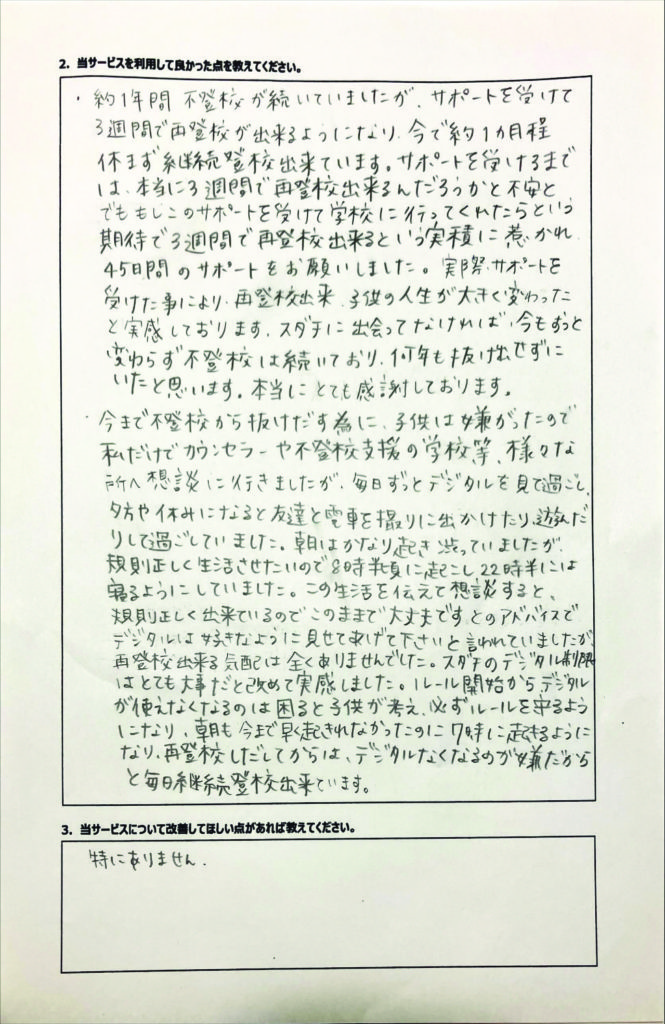 2. 当サービスを利用して良かった点を教えてください。
・約1年間 不登校が続いていましたが、サポートを受けて
3週間で再登校が出来るようになり、今で約1カ月程
休まず継続登校出来ています。サポートを受けるまで
は、本当に3週間で再登校出来るんだろうかと不安と
でももしこのサポートを受けて学校に行ってくれたらという
期待で3週間で再登校出来るという実積に惹かれ
45日間のサポートをお願いしました。実際サポートを
受けた事により、再登校出来、子供の人生が大きく変わった
と実感しております。スダチに出会ってなければ、今もずっと
変わらず不登校は続いており、何年も抜け出せずに
いたと思います。本当にとても感謝しております。
・今まで不登校から抜けだす為に、子供は嫌がったので
私だけでカウンセラーや不登校支援の学校等、様々な
所へ想談に行きましたが、毎日ずっとデジタルを見て過ごし、
夕方や休みになると友達と電車を撮りに出かけたり、遊んだ
りして過ごしていました。朝はかなり起き渋っていましたが、
規則正しく生活させたいので8時半頃に起こし22時半には
寝るようにしていました。この生活を伝えて想談すると、
規則正しく出来ているのでこのままで大丈夫ですとのアドバイスで
デジタルは好きなように見せてあげて下さいと言われていましたが
再登校出来る気配は全くありませんでした。スダチのデジタル制限
はとても大事だと改めて実感しました。ルール開始からデジタル
が使えなくなるのは困ると子供が考え、必ずルールを守るよう
になり、朝も今まで早く起きれなかったのに7時に起きるように
なり、再登校しだしてからは、デジタルなくなるのが嫌だから
と毎日継続登校出来ています。
3. 当サービスについて改善してほしい点があれば教えてください。
特にありません.